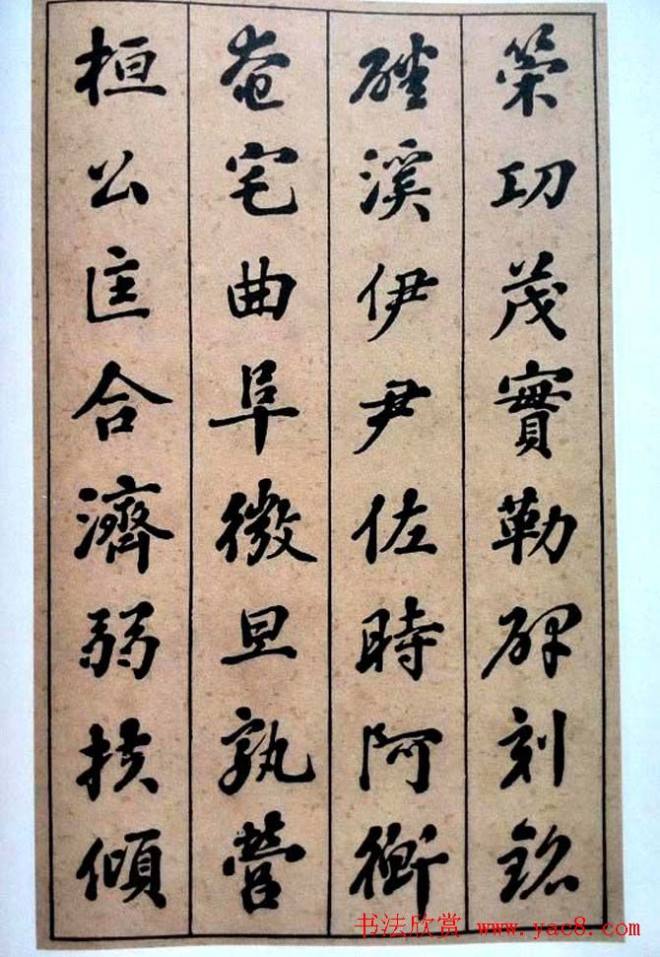 策功茂實勒碑刻銘
磻溪伊尹佐時阿衡
奄宅曲阜微旦孰營
桓公匡合濟弱扶傾
书法欣赏 www.yac8.com